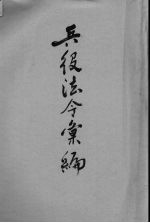 兵役法令彙編